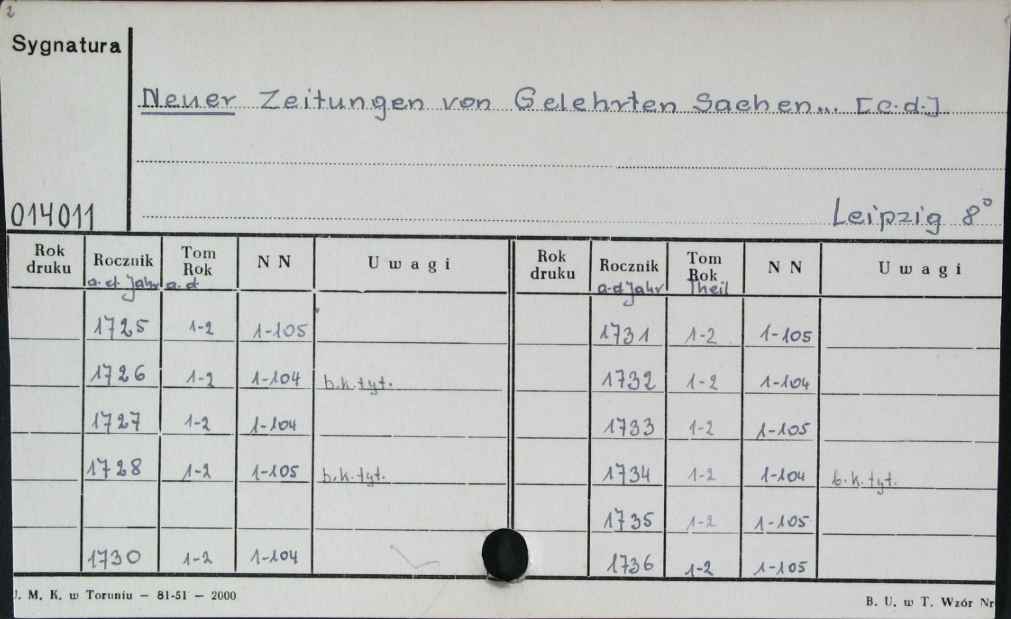 2
Sygnatura
Neuer Zeitungen von Gelehrten Sachen... [c.d.]
014011
Leipzig 8°
Rok druku Rocznik Tom Rok NN Uwagi Rok druku Rocznik Tom Rok NN Uwagi
a.d. Jahr a.d a.d Jahr Theil
1725 1-2 1-105 1731 1-2 1-105
1726 1-2 1-104 b.k.tyt. 1732 1-2 1-104
1727 1-2 1-104 1733 1-2 1-105
1728 1-2 1-105 b.k.tyt. 1734 1-2 1-104 b.k.tyt.
1735 1-2 1-105
1730 1-2 1-104 1736 1-2 1-105
U. M. K. w Toruniu — 81-51 — 2000
B. U. w T. Wzór Nr